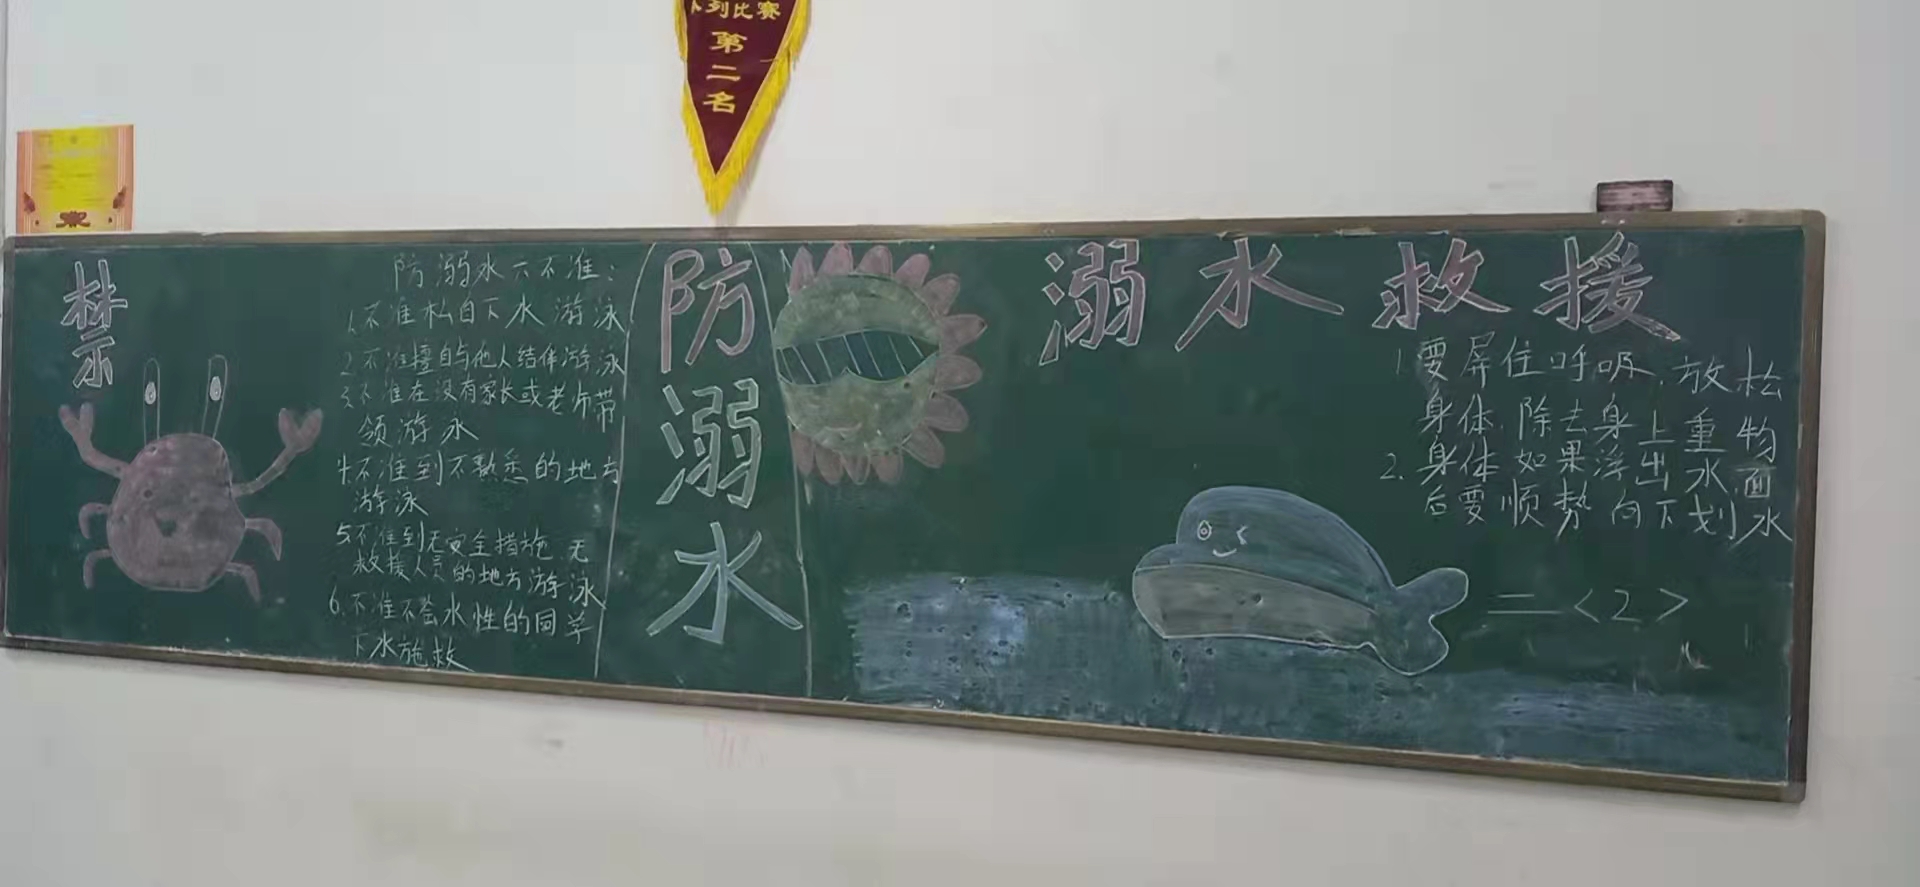 列比赛
第二名
禁示
防溺水六不准:
1.不准私自下水游泳
2.不准擅自与他人结伴游泳
3.不准在没有家长或老师带
领游泳
4.不准到不熟悉的地方
游泳
5.不准到无安全措施、无
救援人员的地方游泳
6.不准不会水性的同学
下水施救
防溺水
溺水救援
1.要屏住呼吸,放松
身体,除去身上重物
2.身体如果浮出水面
后要顺势向下划水
二<2>